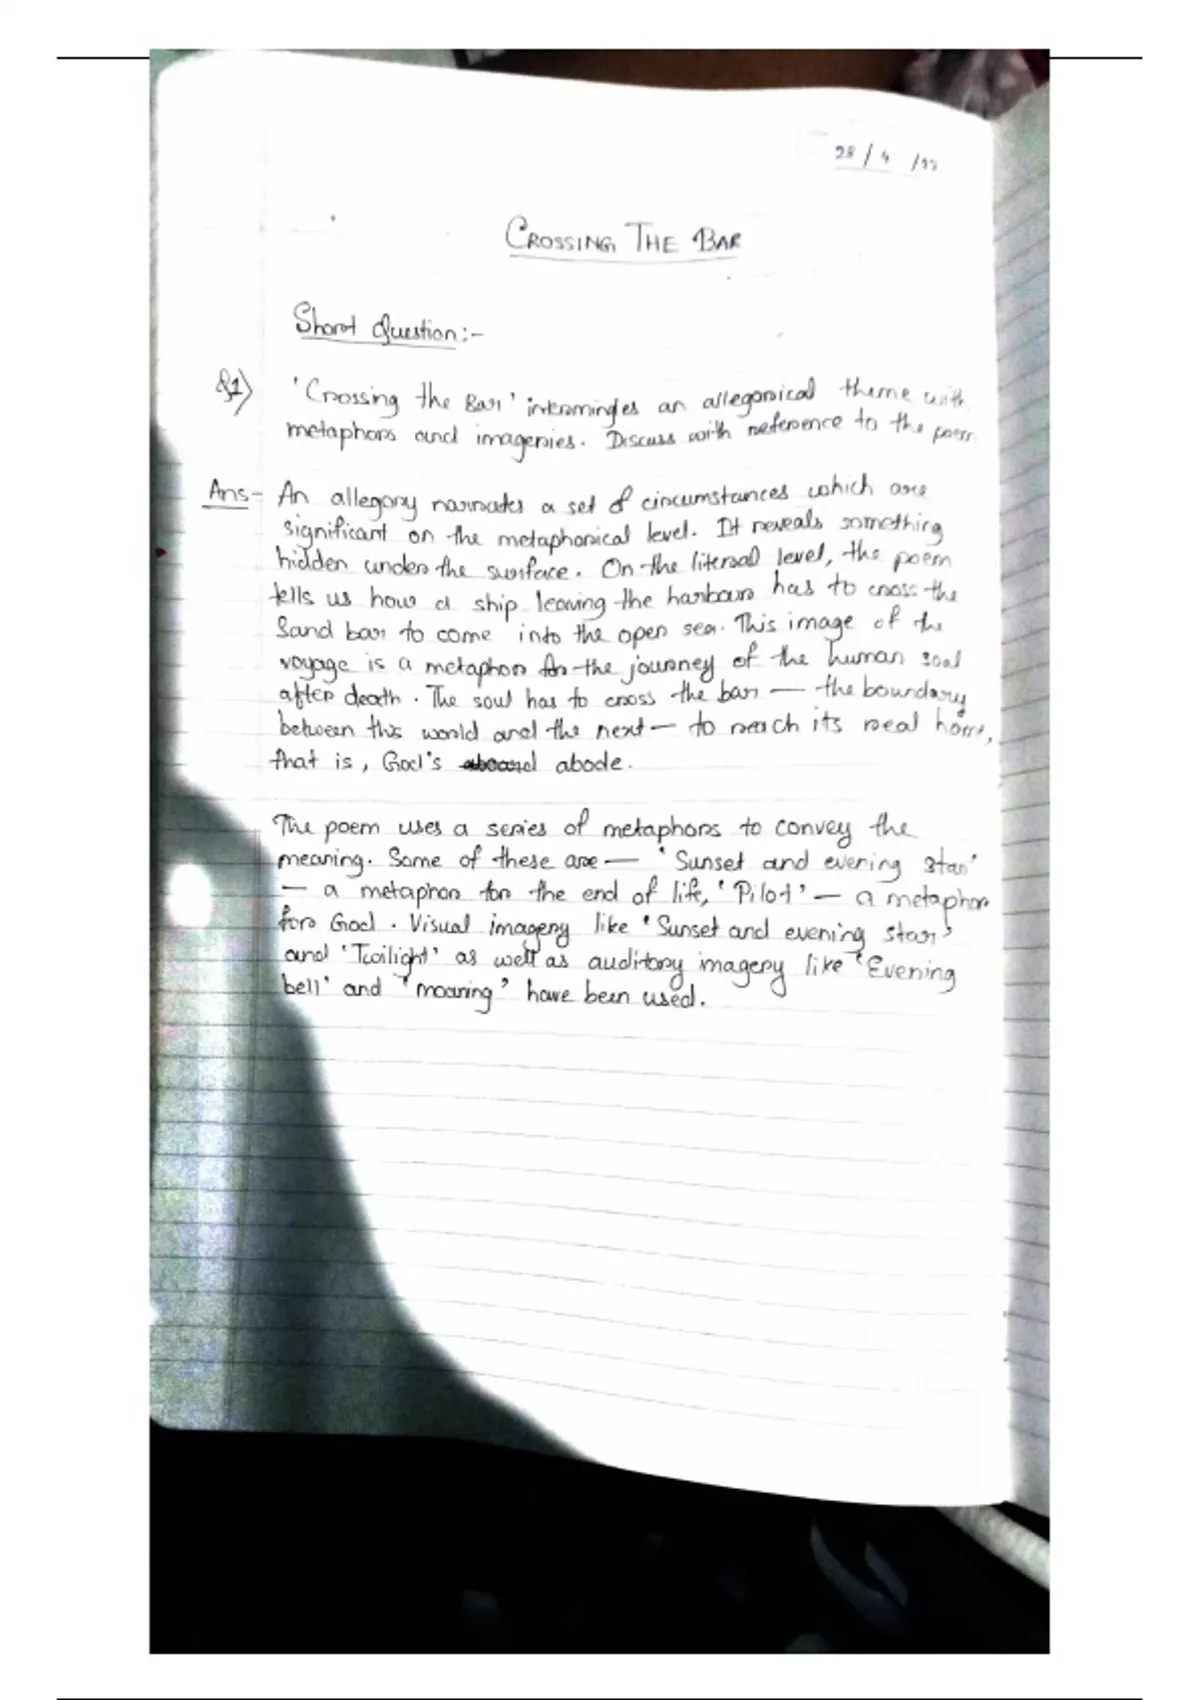 28/4/22
CROSSING THE BAR
Short Question:-
Q1) 'Crossing the Bar' intermingles an allegorical theme with
metaphors and imageries. Discuss with reference to the poem
Ans- An allegory narrates a set of circumstances which are
significant on the metaphorical level. It reveals something
hidden under the surface. On the literal level, the poem
tells us how a ship leaving the harbour has to cross the
Sand bar to come into the open sea. This image of the
voyage is a metaphor for the journey of the human soul
after death. The soul has to cross the bar — the boundary
between this world and the next — to reach its real home,
that is, God's abode.
The poem uses a series of metaphors to convey the
meaning. Some of these are — 'Sunset and evening star'
— a metaphor for the end of life, 'Pilot' — a metaphor
for God. Visual imagery like 'Sunset and evening star'
and 'Twilight' as well as auditory imagery like 'Evening
bell' and 'moaning' have been used.